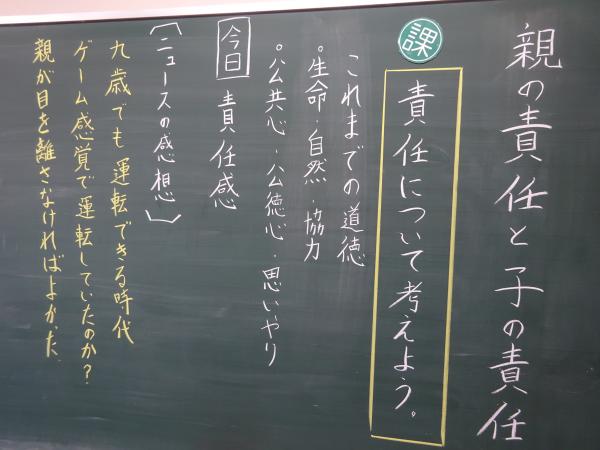 親の責任と子の責任
課
責任について考えよう。
これまでの道徳
。生命・自然・協力
。公共心・公徳心・思いやり
今日 責任感
〔ニュースの感想〕
九歳でも運転できる時代
ゲーム感覚で運転していたのか？
親が目を離さなければよかった